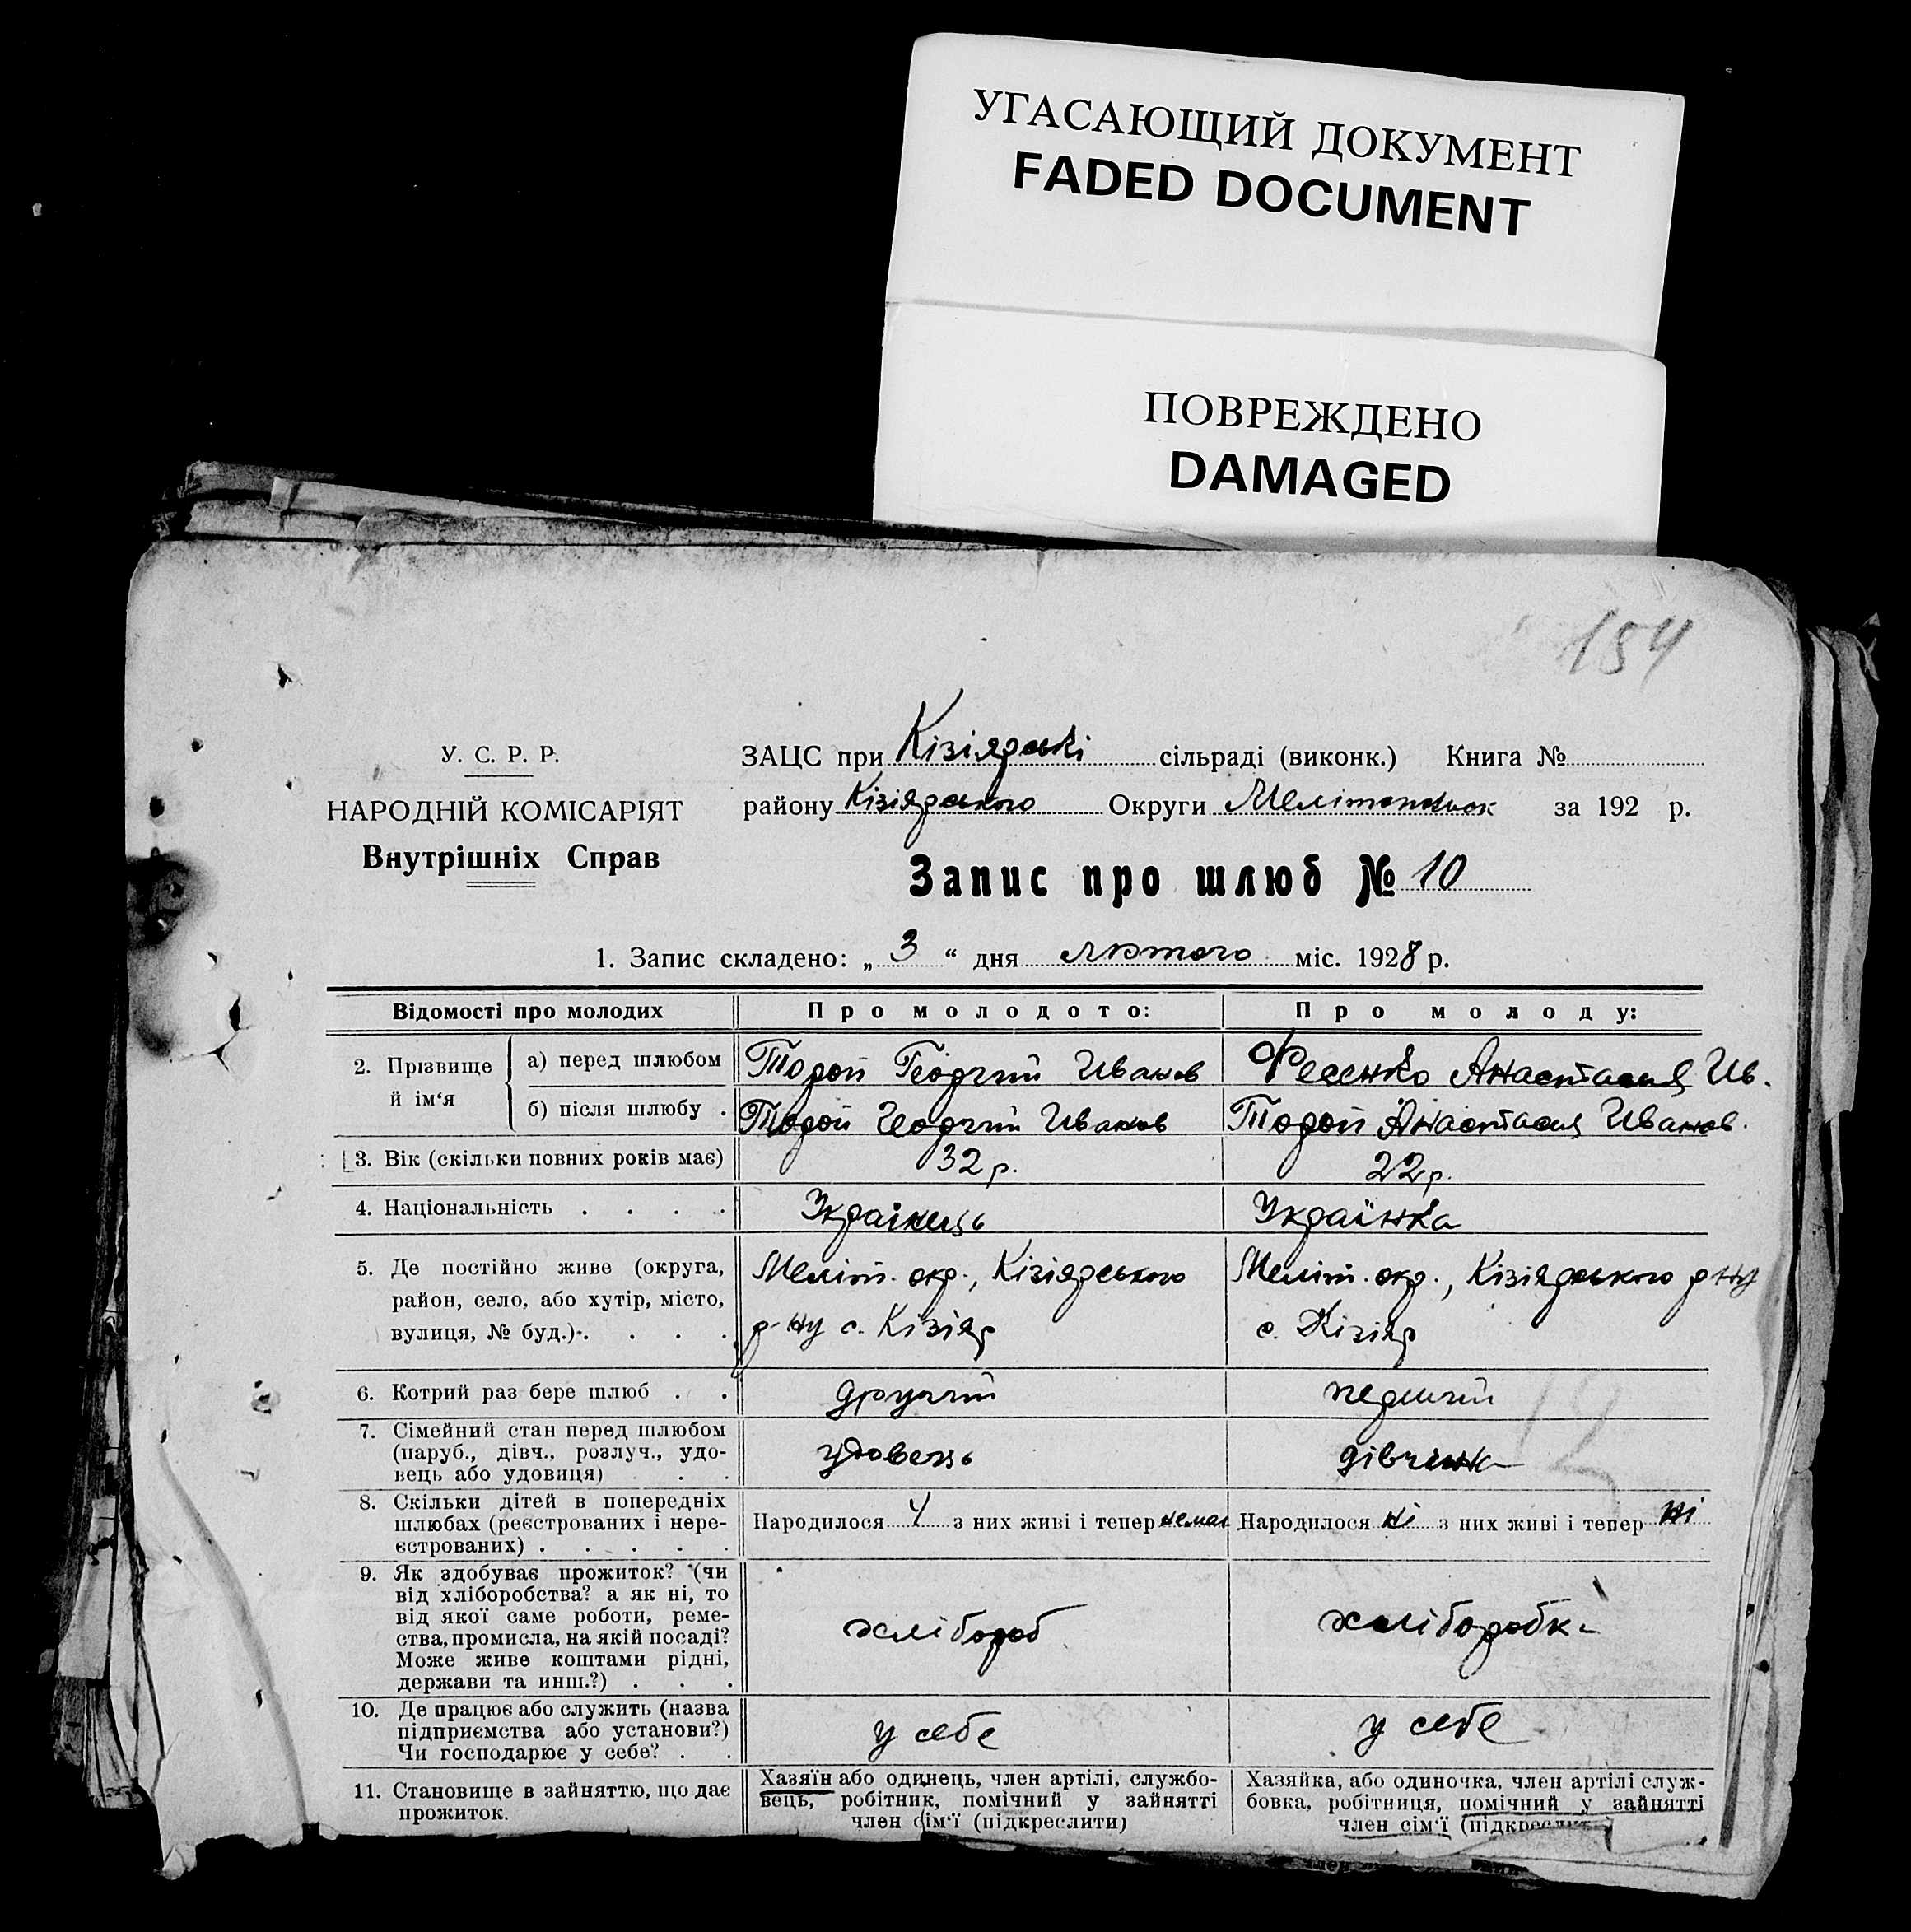 УГАСАЮЩИЙ ДОКУМЕНТ
FADED DOCUMENT
ПОВРЕЖДЕНО
DAMAGED
154
У. С. Р. Р.
НАРОДНІЙ КОМІСАРІЯТ
Внутрішніх Справ
ЗАЦС при Кізіярські сільраді (виконк.) Книга №
району Кізіярського Округи за 192 р.
Запис про шлюб № 10
1. Запис складено: „ 3 “ дня лютого міс. 1928 р.
Відомості про молодих
Про молодого:
Про молоду:
2. Прізвище й ім‘я
а) перед шлюбом
Тодой Георгий Иванов
Фесенко Анастасия Ив.
б) після шлюбу .
Тодой Георгий Иванов
Тодой Анастасия Иванов.
3. Вік (скільки повних років має)
32 р.
22 р.
4. Національність . . . .
Українець
Українка
5. Де постійно живе (округа,
район, село, або хутір, місто,
вулиця, № буд.) . . . .
Меліт. окр., Кізіярського
р-ну с. Кізіяр
Меліт. окр., Кізіярського р-ну
с. Кізіяр
6. Котрий раз бере шлюб . .
другий
перший
7. Сімейний стан перед шлюбом
(паруб., дівч., розлуч., удо-
вець або удовиця) . .
удовець
дівчинка
8. Скільки дітей в попередніх
шлюбах (реєстрованих і нере-
єстрованих) . . . . .
Народилося 4 з них живі і тепер немає
Народилося ні з них живі і тепер ні
9. Як здобуває прожиток? (чи
від хліборобства? а як ні, то
від якої саме роботи, реме-
ства, промисла, на якій посаді?
Може живе коштами рідні,
держави та инш.?) . . .
хлібороб
хліборобка
10. Де працює або служить (назва
підприємства або установи?)
Чи господарює у себе? . .
у себе
у себе
11. Становище в зайняттю, що дає
прожиток.
Хазяїн або одинець, член артілі, службо-
вець, робітник, помічний у зайнятті
член сім‘ї (підкреслити)
Хазяйка, або одиночка, член артілі служ-
бовка, робітниця, помічний у зайнятті
член сім‘ї
12